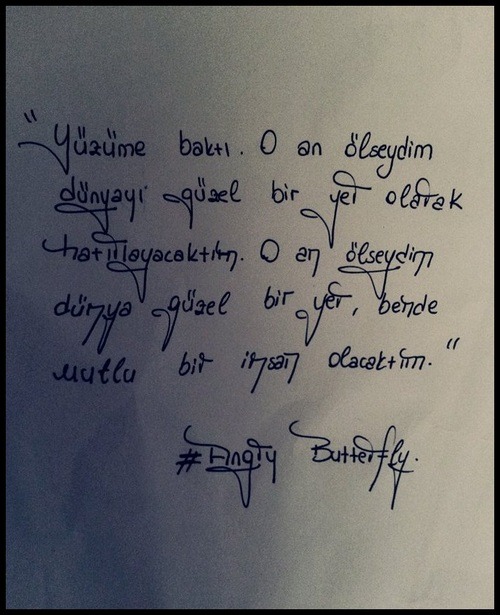 "Yüzüme baktı. O an ölseydim
dünyayı güzel bir yer olarak
hatırlayacaktım. O an ölseydim
dünya güzel bir yer, bende
mutlu bir insan olacaktım."
#Angry Butterfly.